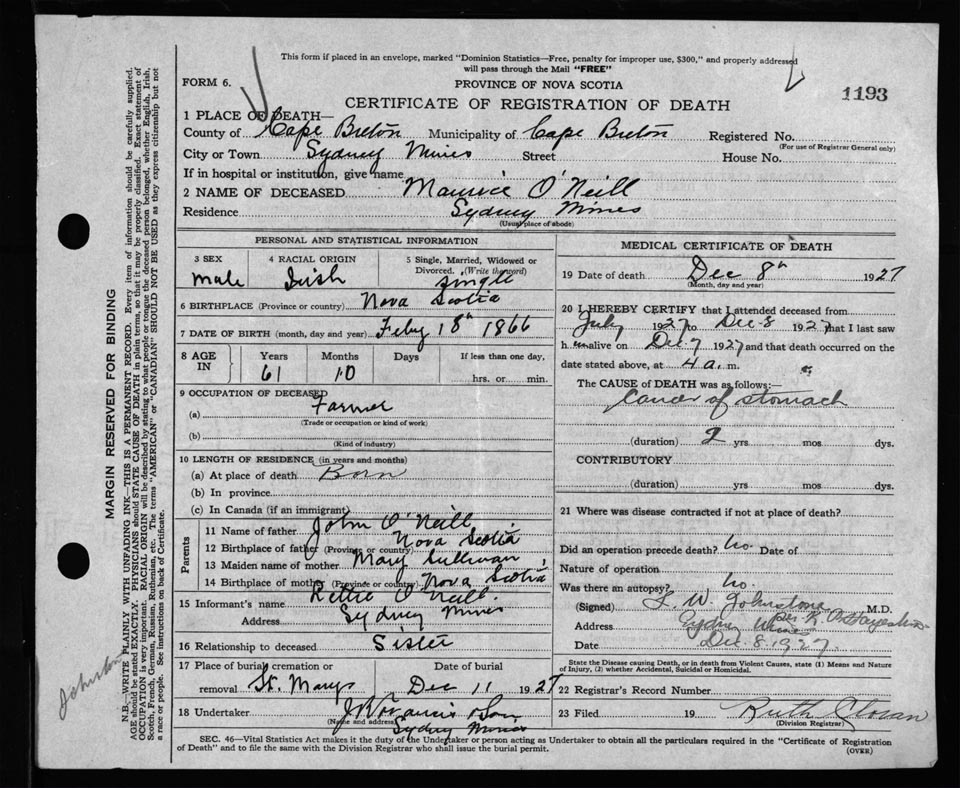 This form if placed in an envelope, marked "Dominion Statistics—Free, penalty for improper use, $300," and properly addressed
will pass through the Mail "FREE"
FORM 6.
PROVINCE OF NOVA SCOTIA
1193
CERTIFICATE OF REGISTRATION OF DEATH
1 PLACE OF DEATH—
County of Cape Breton Municipality of Cape Breton Registered No.
(For use of Registrar General only)
City or Town Sydney Mines Street House No.
If in hospital or institution, give name
2 NAME OF DECEASED Maurice O'Neill
Residence Sydney Mines
(Usual place of abode)
PERSONAL AND STATISTICAL INFORMATION
3 SEX 4 RACIAL ORIGIN 5 Single, Married, Widowed or
Divorced. (Write the word)
male Irish single
6 BIRTHPLACE (Province or country) Nova Scotia
7 DATE OF BIRTH (month, day and year) Feby 18th 1866
8 AGE IN Years Months Days If less than one day,
61 10 hrs. or min.
9 OCCUPATION OF DECEASED
(a) Farmer
(Trade or occupation or kind of work)
(b)
(Kind of industry)
10 LENGTH OF RESIDENCE (in years and months)
(a) At place of death Born
(b) In province
(c) In Canada (if an immigrant)
Parents
11 Name of father John O'Neill
12 Birthplace of father (Province or country) Nova Scotia
13 Maiden name of mother Mary Sullivan
14 Birthplace of mother (Province or country) Nova Scotia
15 Informant's name Rettie O'Neill
Address Sydney Mines
16 Relationship to deceased Sister
17 Place of burial, cremation or Date of burial
removal St. Marys Dec 11 1927
18 Undertaker & Son
(Name and address)
Sydney Mines
MEDICAL CERTIFICATE OF DEATH
19 Date of death Dec 8th 1927
(Month, day and year)
20 I HEREBY CERTIFY that I attended deceased from
July 1927 to Dec 8 1927 that I last saw
h im alive on Dec 7 1927 and that death occurred on the
date stated above, at 4 a. m.
The CAUSE of DEATH was as follows:—
Cancer of stomach
(duration) 2 yrs. mos. dys.
CONTRIBUTORY
(duration) yrs. mos. dys.
21 Where was disease contracted if not at place of death?
Did an operation precede death? No. Date of
Nature of operation
Was there an autopsy? No.
(Signed) L. W. Johnstone M.D.
Address Sydney Mines
Date Dec. 8. 1927.
State the Disease causing Death, or in death from Violent Causes, state (1) Means and Nature
of Injury, (2) whether Accidental, Suicidal or Homicidal.
22 Registrar's Record Number
23 Filed 19 Ruth Cloran
(Division Registrar)
SEC. 46—Vital Statistics Act makes it the duty of the Undertaker or person acting as Undertaker to obtain all the particulars required in the "Certificate of Registration
of Death" and to file the same with the Division Registrar who shall issue the burial permit.
(OVER)
MARGIN RESERVED FOR BINDING
N.B.—WRITE PLAINLY WITH UNFADING INK—THIS IS A PERMANENT RECORD. Every item of information should be carefully supplied.
AGE should be stated EXACTLY. PHYSICIANS should STATE CAUSE OF DEATH in plain terms, so that it may be properly classified. Exact statement of
OCCUPATION is very important. RACIAL ORIGIN will be described by stating to what people or tongue the deceased person belonged, whether English, Irish,
Scotch, French, German, Russian, Ruthenian, etc. The terms "AMERICAN" or "CANADIAN" SHOULD NOT BE USED as they express citizenship but not
a race or people. See instructions on back of Certificate.
Johnston